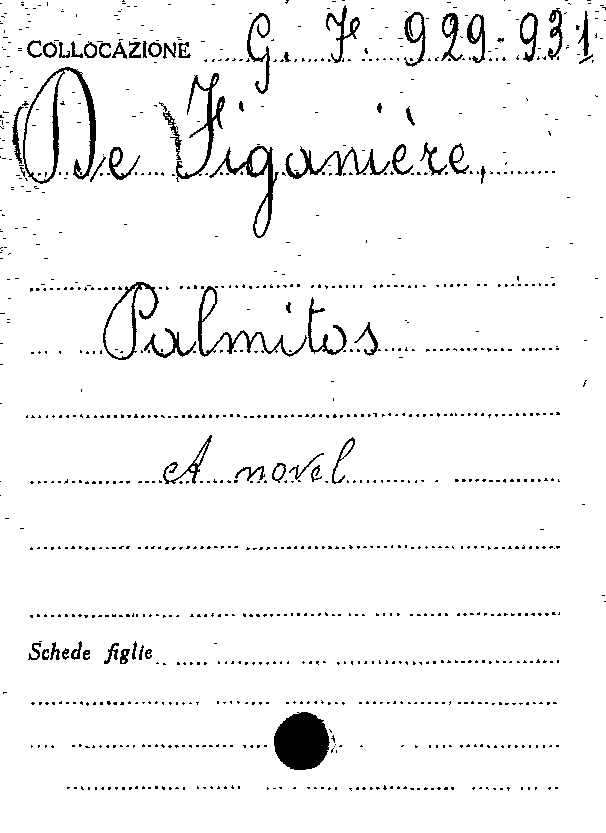 COLLOCAZIONE G. F. 929-931
(De) Figanière,
Palmitos
A novel
Schede figlie